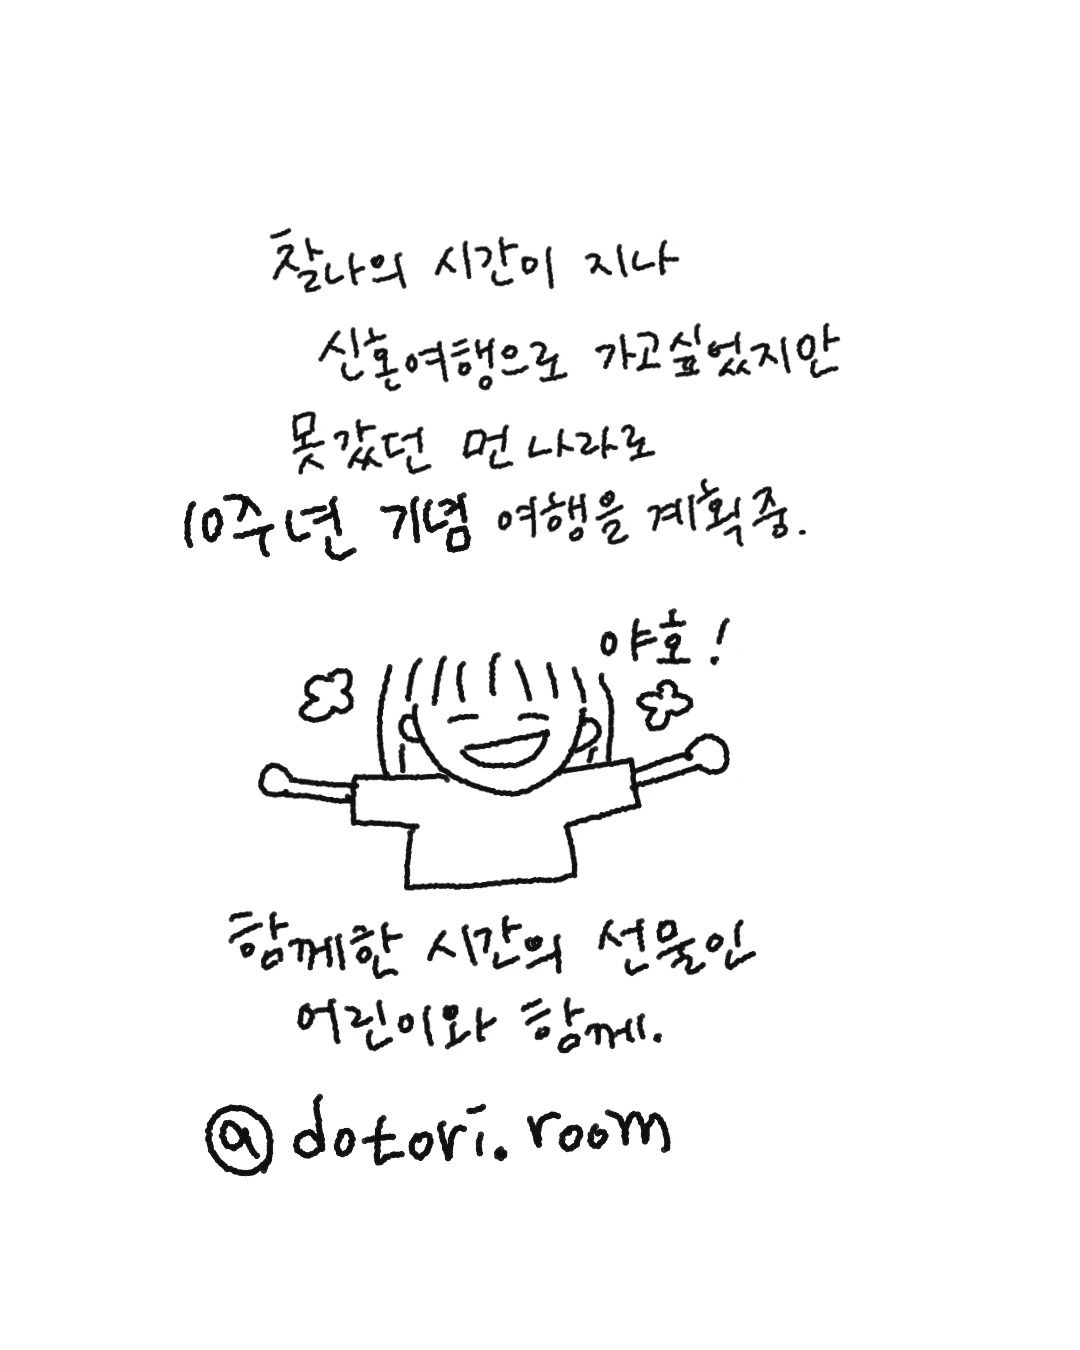 찰나의 시간이 지나
신혼여행으로 가고싶었지만
못갔던 먼 나라로
10주년 기념 여행을 계획중.
야호!
함께한 시간의 선물인
어린이와 함께.
@dotori.room